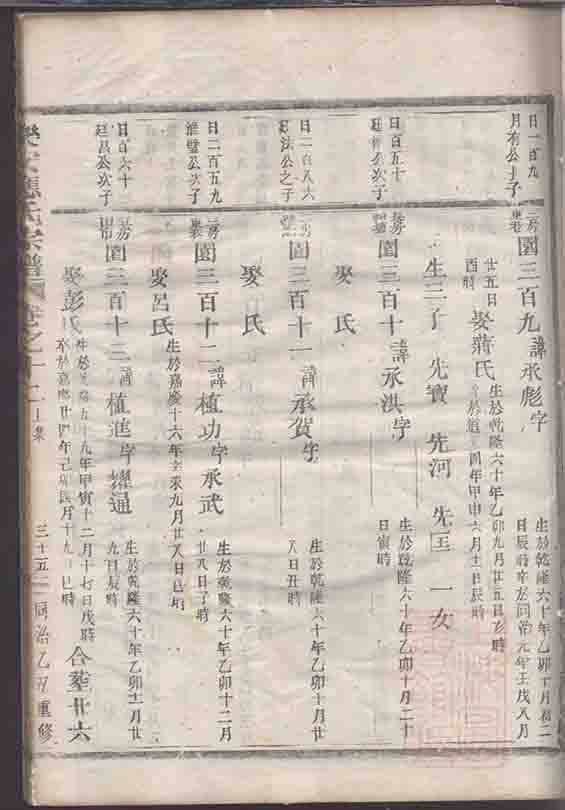 日一百九
月有公子
園三百九諱承彪字
生於乾隆六十年乙卯十月初二
日辰時卒於同治元年壬戌八月
廿五日
酉時
娶蔣氏
生於乾隆六十年乙卯九月廿五日亥時
卒於道光四年甲申六月十二日辰時
生三子 先寶 先河 先匡 一女
日百五十
公次子
園三百十諱承洪字
生於乾隆六十年乙卯十月二十
日寅時
娶 氏
日二百八六
法公之子
園三百十一諱承賀字
生於乾隆六十年乙卯十月廿
八日丑時
娶 氏
日二百五九
淮璧公次子
園三百十二諱植功字承武
生於乾隆六十年乙卯十二月
廿八日子時
娶呂氏
生於嘉慶十六年辛未九月廿八日巳時
日百六十二
廷昌公次子
園三百十三諱植進字耀通
生於乾隆六十年乙卯十二月廿
九日辰時
娶彭氏
生於乾隆五十九年甲寅十二月十七日戌時
卒於嘉慶廿四年己卯四月十九日巳時
合葬廿六
樂安應氏宗譜 卷之十二 上集 三十五 同治乙丑重修